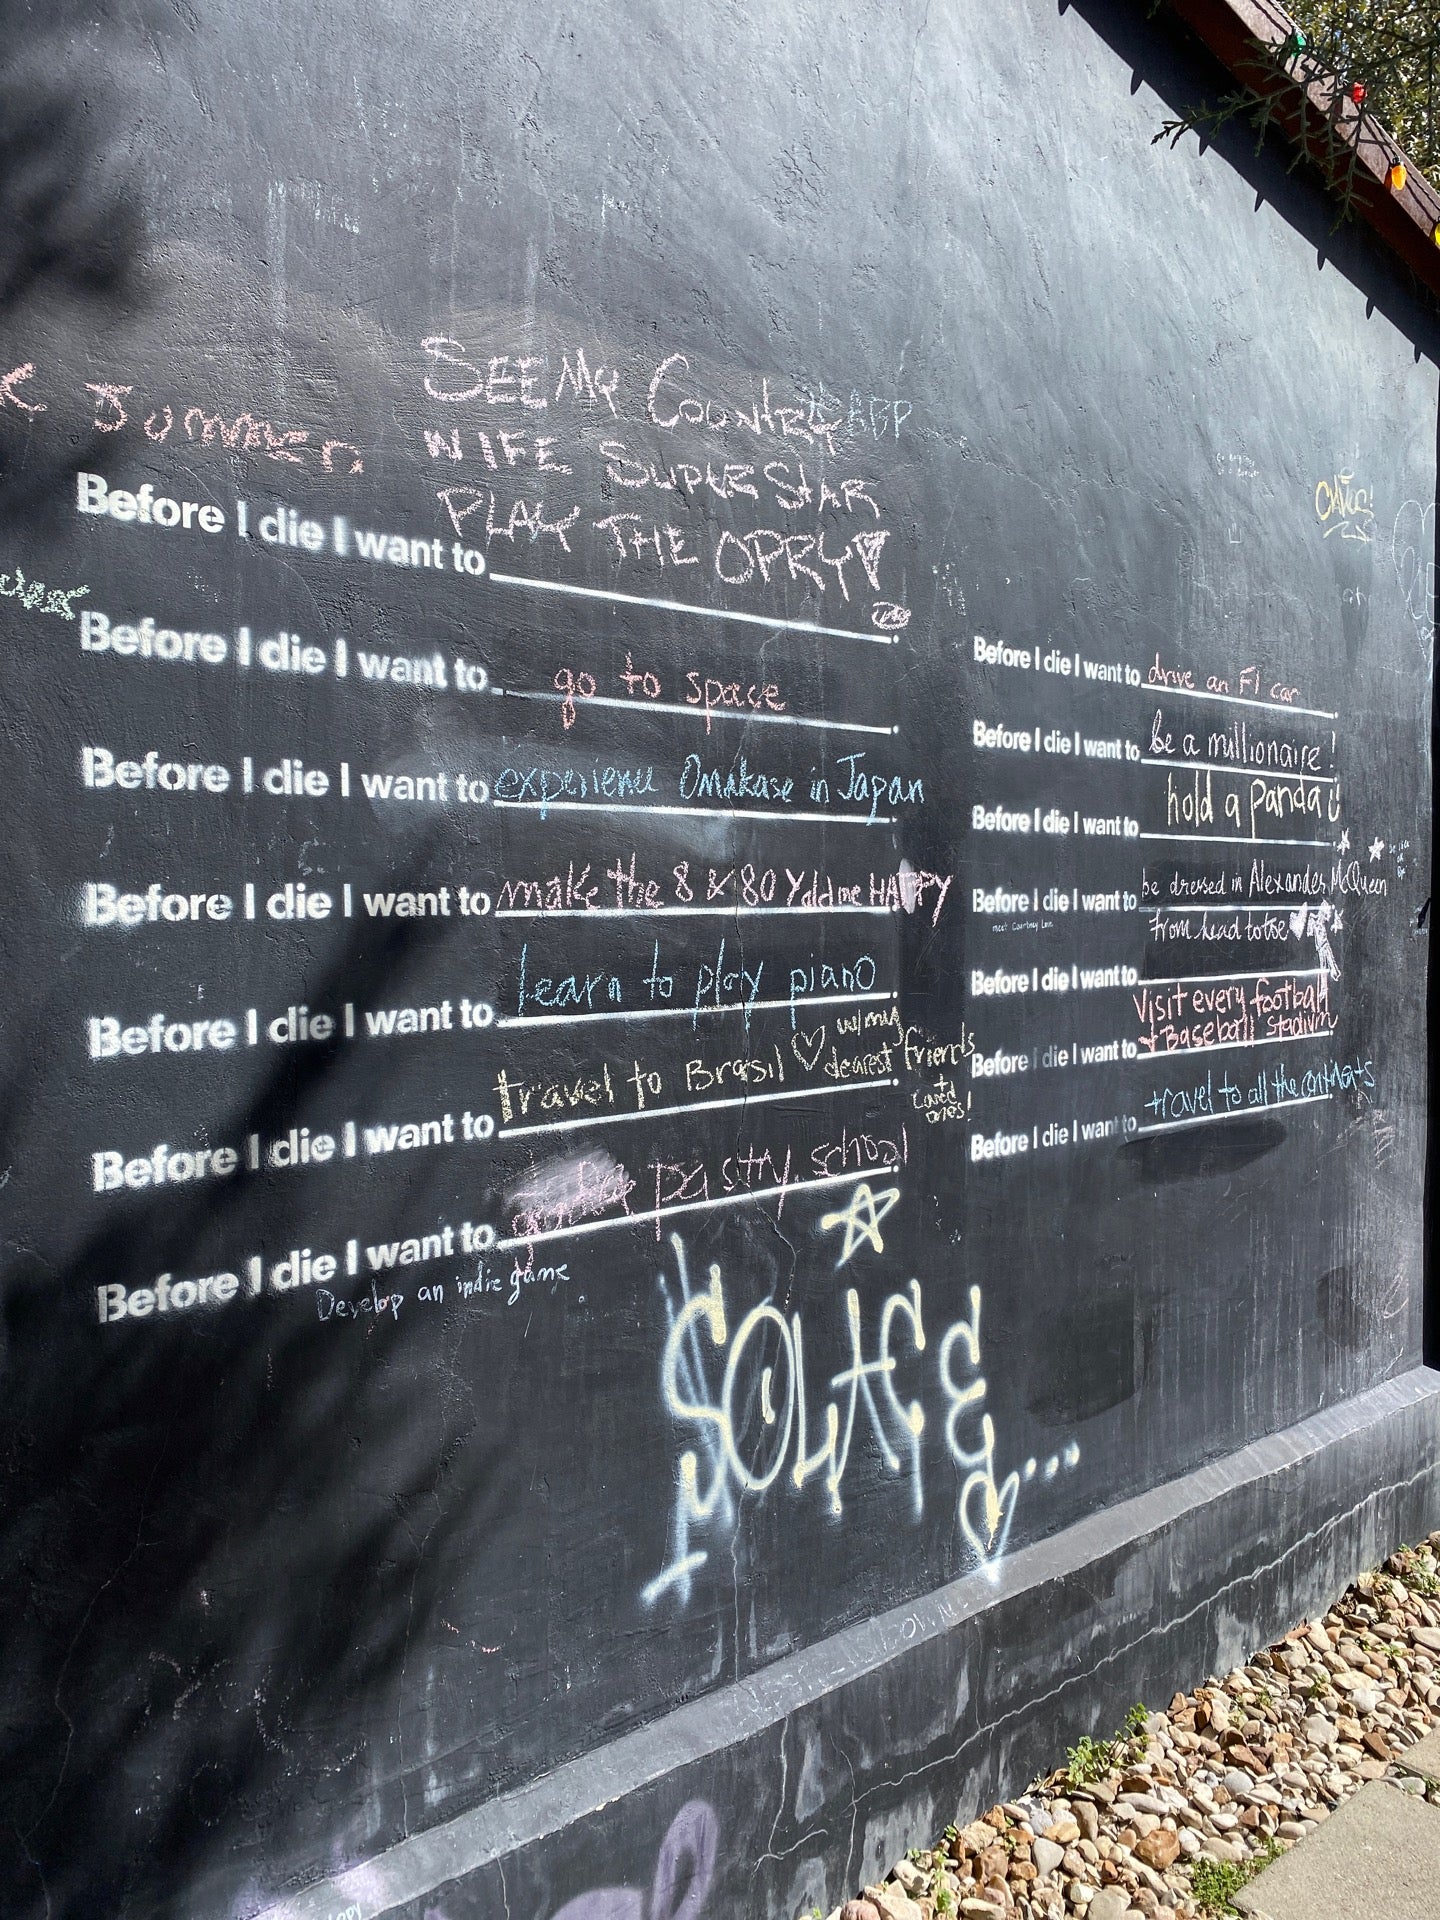 Summer
SEE MY COUNTRY
WIFE SUPERSTAR
PLAY THE OPRY
Before I die I want to
Before I die I want to go to space
Before I die I want to experience Omakase in Japan
Before I die I want to make the 8 & 80 Y old me HAPPY
Before I die I want to learn to play piano
Before I die I want to travel to Brasil w/ my
dearest friends
loved
ones!
Before I die I want to pastry school
Develop an indie game
SOLACE...
Before I die I want to drive an F1 car
Before I die I want to be a millionaire!
Before I die I want to hold a panda
Before I die I want to be dressed in Alexander McQueen
meet Courtney Love
from head to toe
Before I die I want to
Visit every football
Before I die I want to + Baseball Stadium
Before I die I want to travel to all the continents